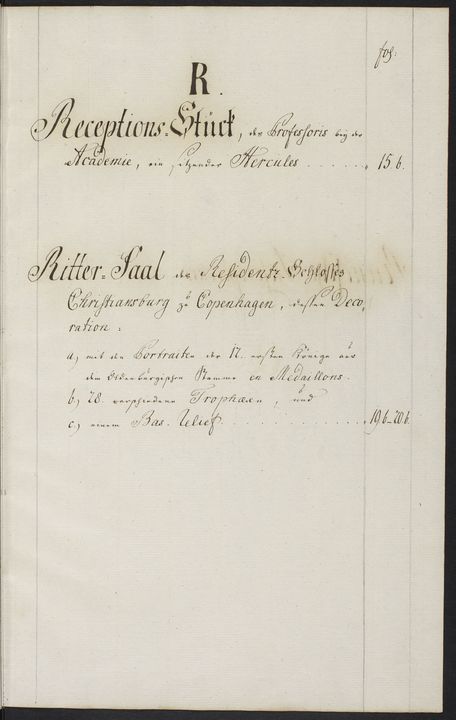 fol:
R.
Receptions-Stück, des Professoris bey der
Academie, ein sitzender Hercules . . . . . . 15 b.
Ritter-Saal des Residentz-Schlosses
Christiansburg zu Copenhagen, dessen Deco,
ration:
a) mit den Portraiten der 12. ersten Könige aus
dem Oldenburgischen Stamme en Medaillons.
b) 28. verschiedenen Trophæen, und
c) einem Bas-Relief . . . . . . . . . . . . 19 b-20 b.